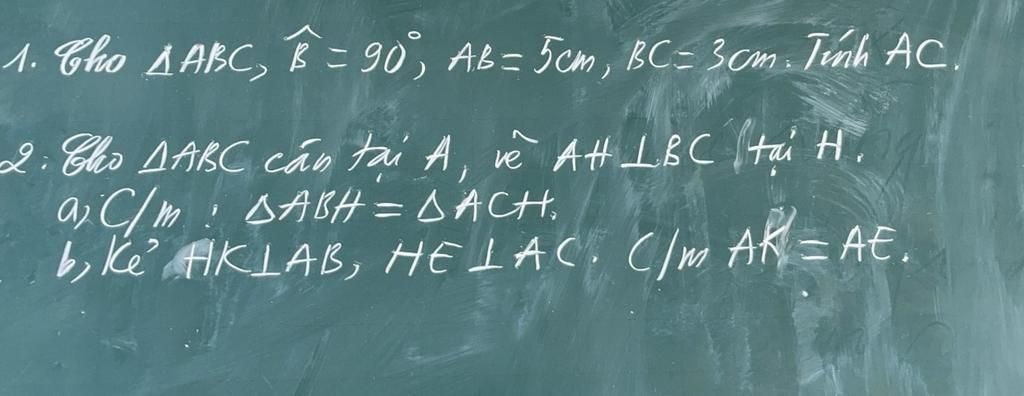 1. Cho ΔABC, B̂ = 90°, AB = 5cm, BC = 3cm. Tính AC.
2. Cho ΔABC cân tại A, vẽ AH⊥BC tại H.
a, C/m : ΔABH = ΔACH.
b, Kẻ HK⊥AB, HE⊥AC. C/m AK = AE.